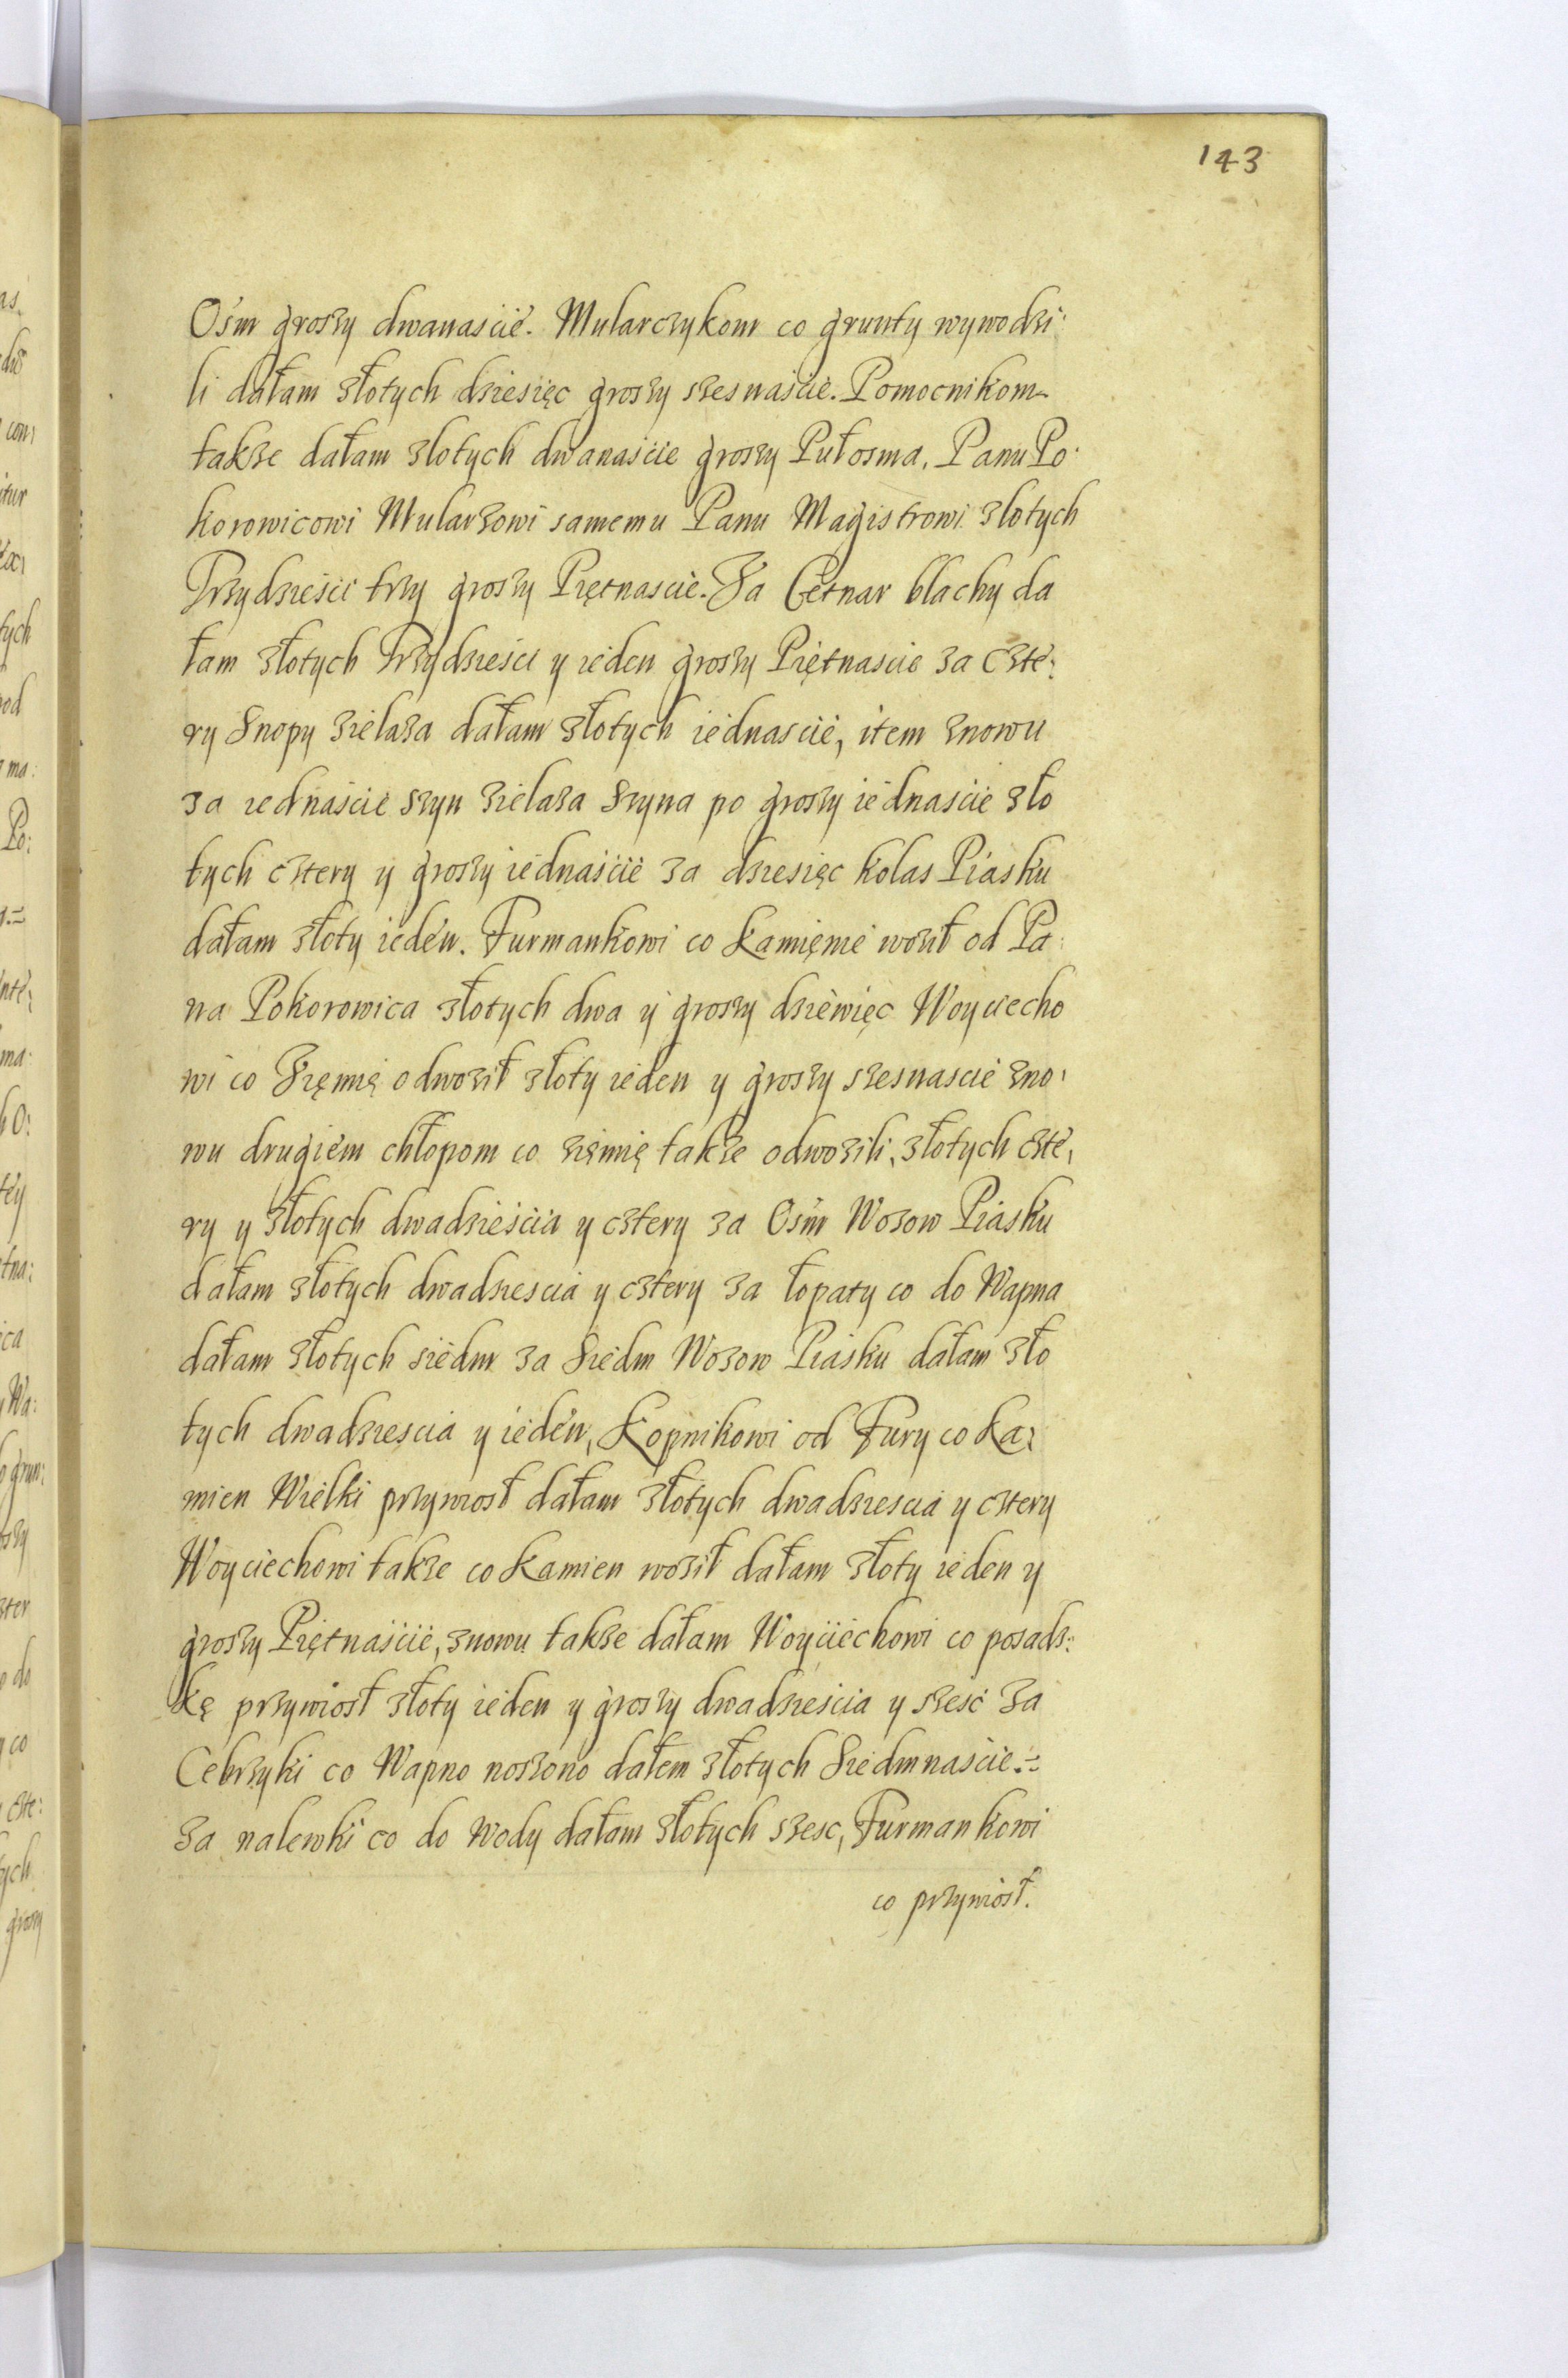 143
Ośm groszy dwanascie. Mularczykom co grunty wywodzi:
li dałam złotych dziesięc groszy szesnascie. Pomocnikom
takze dałam zlotych dwanascie groszy Pułosma. Panu Po:
korowicowi Mularzowi samemu Panu Magistrowi zlotych
Trzydziesci trzy groszy Piętnascie. Za Cetnar blachy da
łam złotych Trzydziesci y ieden groszy Piętnascie za czte:
ry Snopy zielaza dałam złotych iednascie, item znowu
za iednascie szyn zielaza Szyna po groszy iednascie zło
tych cztery y groszy iednascie za dziesięc kolas Piasku
dałam złoty ieden. Furmankowi co Kamięnie woził od Pa:
na Pokorowica złotych dwa y groszy dziewięc Woyciecho
wi co Zięmię odwoził złoty ieden y groszy szesnascie zno:
wu drugiem chłopom co zięmię takze odwozili, złotych czte:
ry y złotych dwadziescia y cztery za Ośm Wozow Piasku
dałam złotych dwadziescia y cztery za łopaty co do Wapna
dałam złotych siedm za Siedm Wozow Piasku dałam zło
tych dwadziescia y ieden, Kopnikowi od Fury co Ka:
mien Wielki przywiosł dałam złotych dwadziescia y cztery
Woyciechowi takze co Kamien woził dałam złoty ieden y
groszy Piętnascie, znowu takze dałam Woyciechowi co posadz:
kę przywiosł złoty ieden y groszy dwadziescia y szesc za
Cebrzyki co Wapno noszono dałem złotych Siedmnascie.=
za nalewki co do Wody dałam złotych szesc, Furmankowi
co przywiosł.